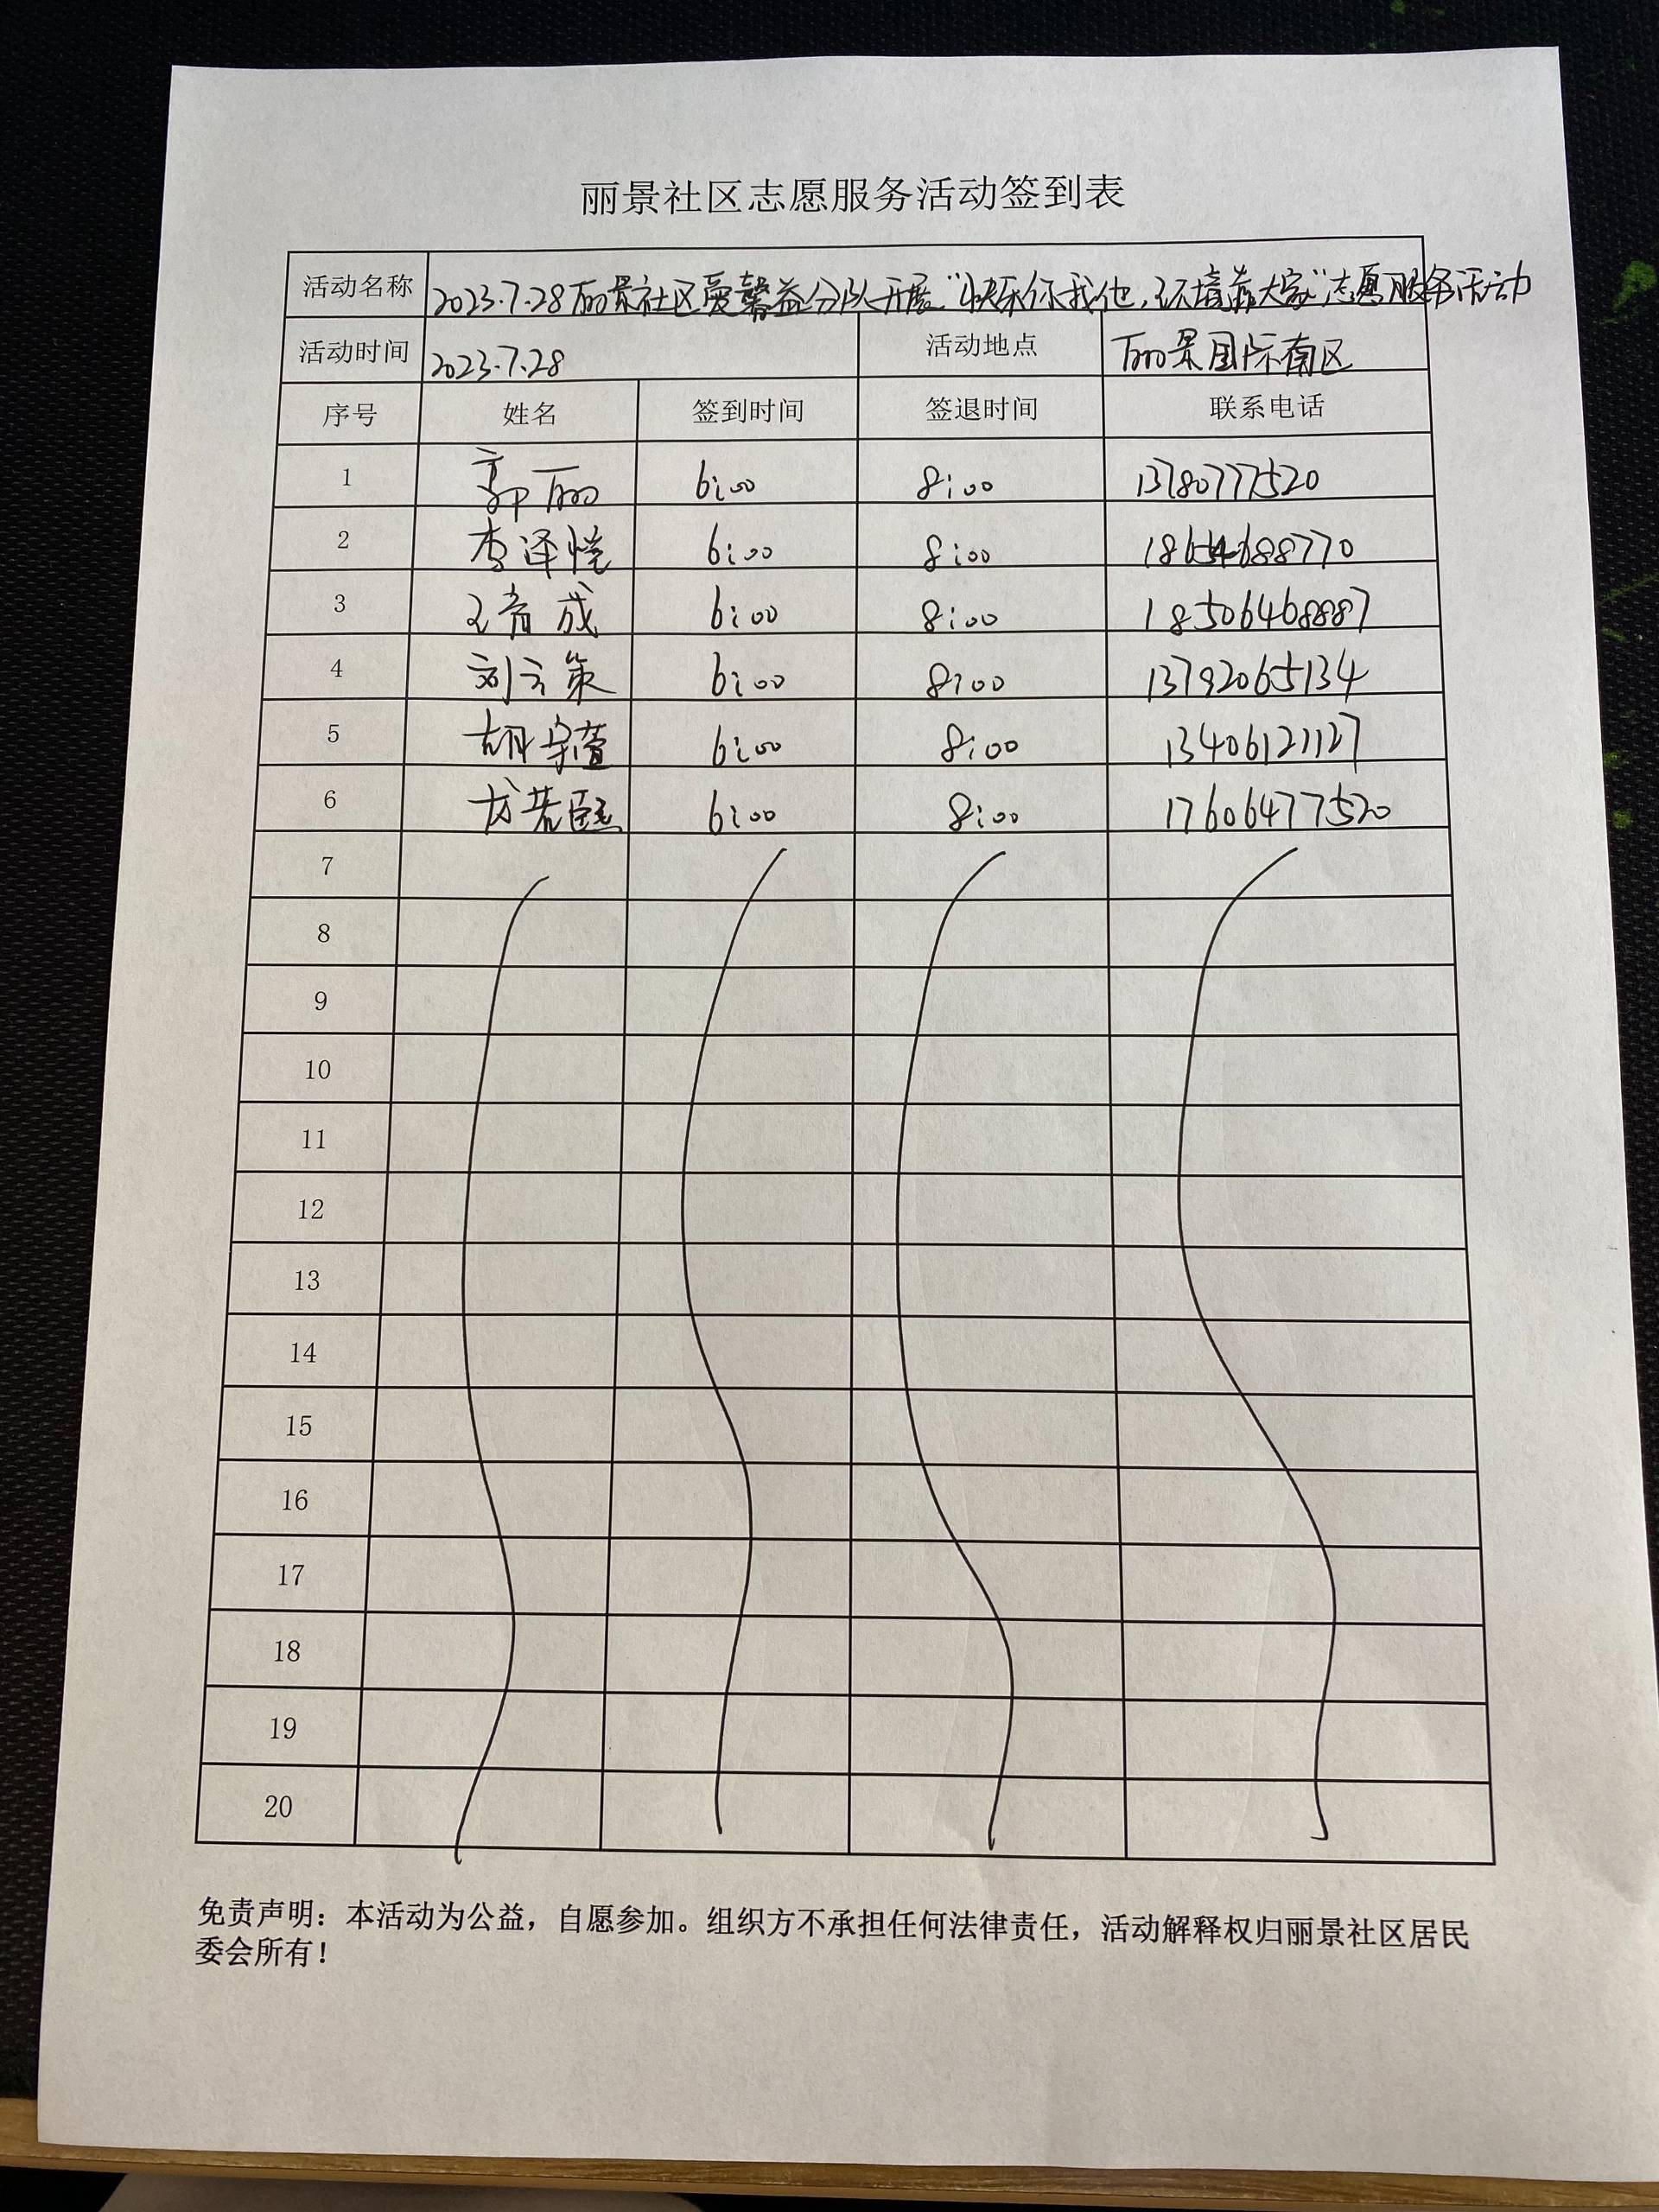 丽景社区志愿服务活动签到表
活动名称 2023.7.28丽景社区爱馨益分队开展“快乐你我他,环境靠大家”志愿服务活动
活动时间 2023.7.28 活动地点 丽景国际南区
序号 姓名 签到时间 签退时间 联系电话
1 郭丽 6:00 8:00 13780777520
2 李泽恺 6:00 8:00 18654688770
3 王育成 6:00 8:00 18506468887
4 刘方策 6:00 8:00 13792065134
5 胡宇萱 6:00 8:00 13406121127
6 尤若 6:00 8:00 17606477520
7
8
9
10
11
12
13
14
15
16
17
18
19
20
免责声明：本活动为公益，自愿参加。组织方不承担任何法律责任，活动解释权归丽景社区居民
委会所有！